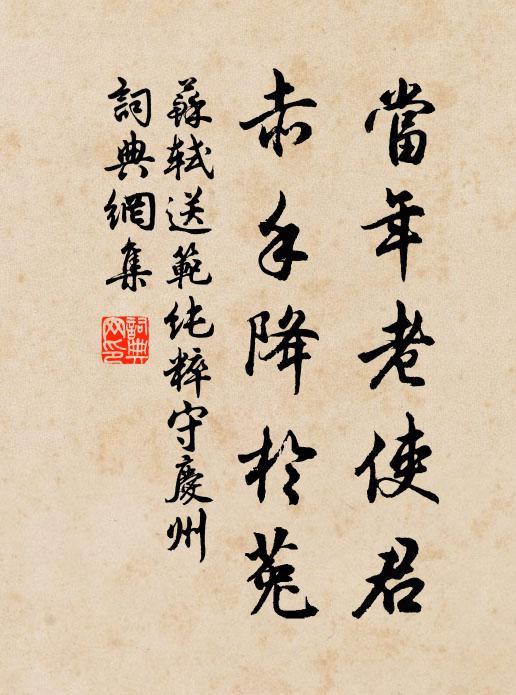 當年老使君
赤手降於菟
蘇軾送範純粹守慶州
詞典網集
詞典網印